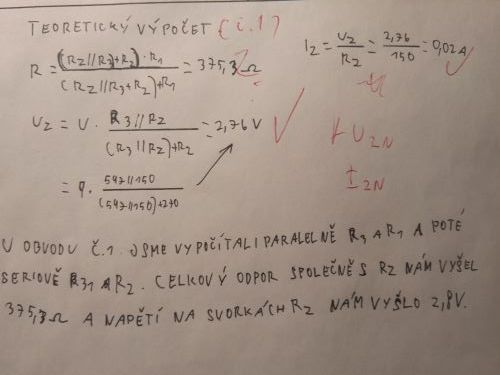 TEORETICKÝ VÝPOČET (č.1)
R = ((RZ//R3)+R2)·R1 / (RZ//R3+R2)+R1 = 375,3 Ω
IZ = UZ / RZ = 2,76 / 150 = 0,02 A
UZ = U · R3//RZ / (R3//RZ)+R2 = 2,76 V
= 9 · 597//150 / (597//150)+270
+ U2N
± 2N
V OBVODU Č.1 JSME VYPOČÍTALI PARALELNĚ R3 A R1 A POTÉ
SERIOVĚ R31 A R2. CELKOVÝ ODPOR SPOLEČNĚ S RZ NÁM VYŠEL
375,3 Ω A NAPĚTÍ NA SVORKÁCH RZ NÁM VYŠLO 2,8V.